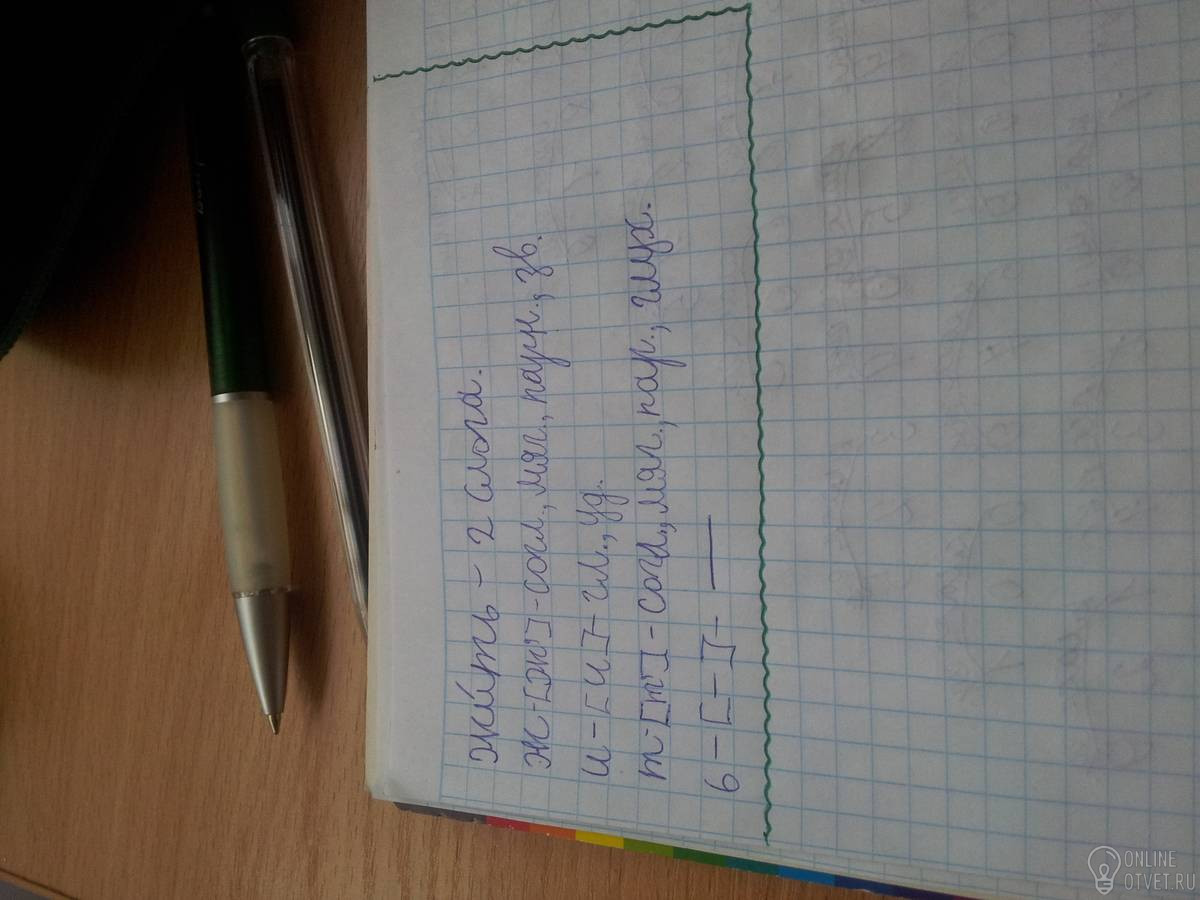 жи́ть - 2 слога.
ж-[ж']-согл., мяг., парн., зв.
и-[и]-гл., уд.
т-[т']-согл., мяг., пар., глух.
ь-[-]- —
ONLINE
OTVET.RU